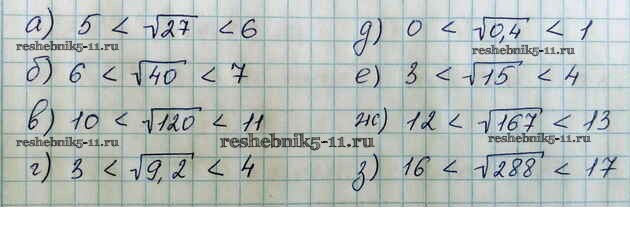 а) 5 < √27 < 6
д) 0 < √0,4 < 1
reshebnik5-11.ru
reshebnik5-11.ru
б) 6 < √40 < 7
е) 3 < √15 < 4
в) 10 < √120 < 11
ж) 12 < √167 < 13
reshebnik5-11.ru
reshebnik5-11.ru
г) 3 < √9,2 < 4
з) 16 < √288 < 17